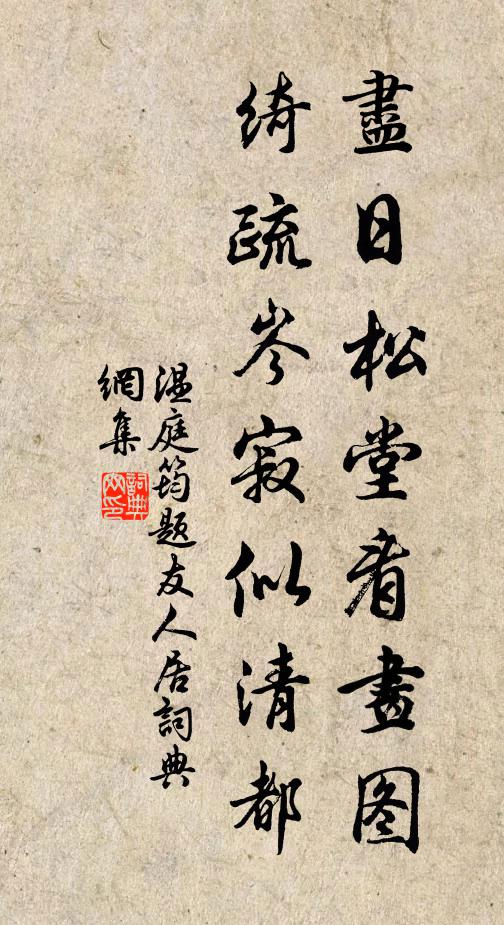 盡日松堂看畫图
綺疏岑寂似清都
温庭筠題友人居詞典
網集
詞典
网印